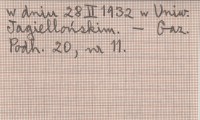 w dniu 28 II 1932 w Uniw.
Jagiellońskim. — Gaz.
Podh. 20, nr 11.